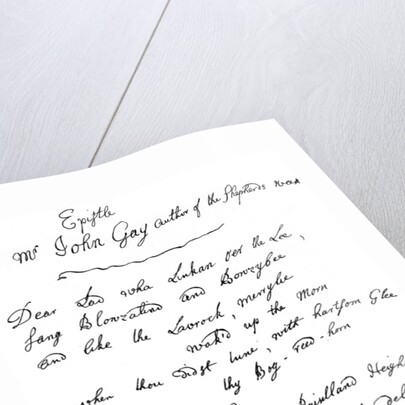 Epistle
Mr John Gay author of the Shepherds week
Dear Lad wha Linkan o'er the Lee,
sang Blowzalind and Bowzybee,
and like the Lavrock, merrylie
wak'd up the Morn
when thou didst tune, with hartsom Glee
thy Bog-reed-horn
Heigh